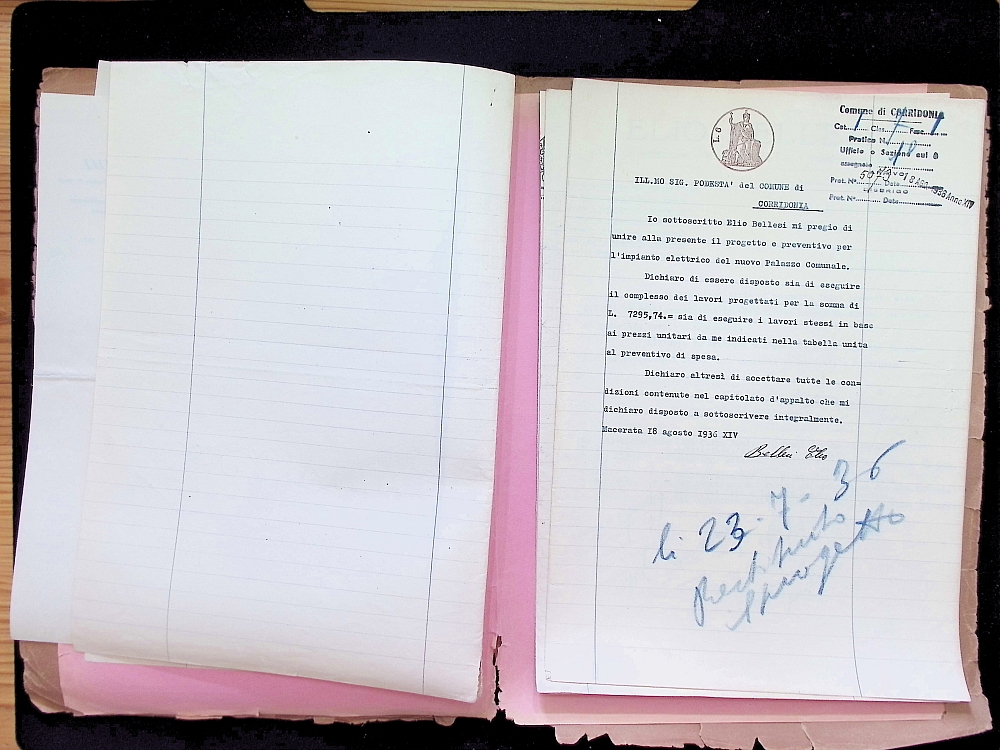 L. 6
Comune di CORRIDONIA
Cat. 1 Clas. 7 Fasc. 1
Pratica N.
Ufficio o Sezione cui è
assegnata
Prot. N° 5079 Data 18 AGO. 1936 Anno XIV
Prot. N° Data
ILL.MO SIG. PODESTA' del COMUNE di
CORRIDONIA
Io sottoscritto Elio Bellesi mi pregio di
unire alla presente il progetto e preventivo per
l'impianto elettrico del nuovo Palazzo Comunale.
Dichiaro di essere disposto sia di eseguire
il complesso dei lavori progettati per la somma di
L. 7295,74.= sia di eseguire i lavori stessi in base
ai prezzi unitari da me indicati nella tabella unita
al preventivo di spesa.
Dichiaro altresì di accettare tutte le con=
dizioni contenute nel capitolato d'appalto che mi
dichiaro disposto a sottoscrivere integralmente.
Macerata 18 agosto 1936 XIV
Bellesi Elio
li 23-7-36
Restituito
il progetto